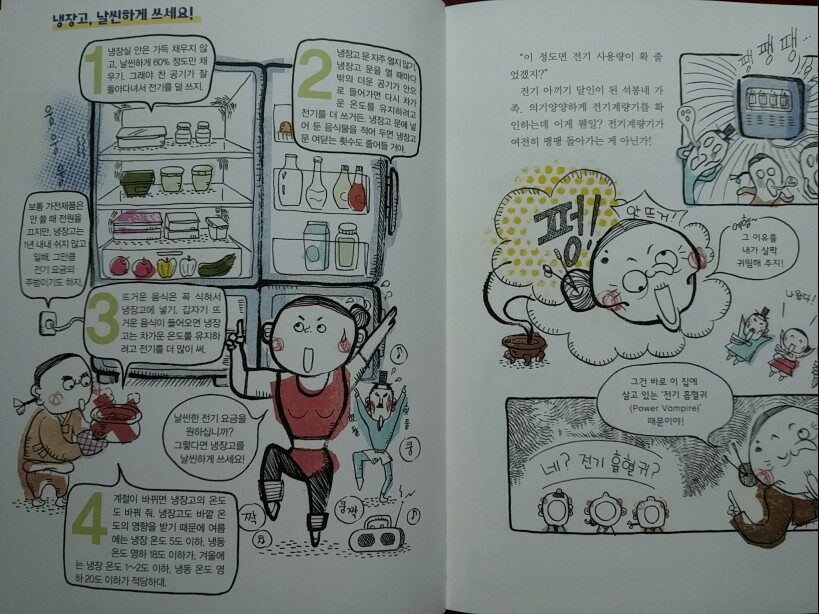 냉장고, 날씬하게 쓰세요!
1
냉장실 안은 가득 채우지 않
고, 날씬하게 60% 정도만 채
우기. 그래야 찬 공기가 잘
돌아다녀서 전기를 덜 쓰지.
2
냉장고 문 자주 열지 않기.
냉장고 문을 열 때마다
밖의 더운 공기가 안으
로 들어가면 다시 차가
운 온도를 유지하려고
전기를 더 쓰거든. 냉장고 문에 넣
어 둔 음식물을 적어 두면 냉장고
문 여닫는 횟수도 줄어들 거야.
웅
웅
웅
보통 가전제품은
안 쓸 때 전원을
끄지만, 냉장고는
1년 내내 쉬지 않고
일해. 그만큼
전기 요금의
주범이기도 하지.
3
뜨거운 음식은 꼭 식혀서
냉장고에 넣기. 갑자기 뜨
거운 음식이 들어오면 냉장
고는 차가운 온도를 유지하
려고 전기를 더 많이 써.
날씬한 전기 요금을
원하십니까?
그렇다면 냉장고를
날씬하게 쓰세요!
쿵
쿵짝
짝
4
계절이 바뀌면 냉장고의 온도
도 바꿔 줘. 냉장고도 바깥 온
도의 영향을 받기 때문에 여름
에는 냉장 온도 5도 이하, 냉동
온도 영하 18도 이하가, 겨울에
는 냉장 온도 1~2도 이하, 냉동 온도 영
하 20도 이하가 적당하대.
“이 정도면 전기 사용량이 확 줄
었겠지?”
전기 아끼기 달인이 된 석봉네 가
족, 의기양양하게 전기계량기를 확
인하는데 이게 웬일? 전기계량기가
여전히 팽팽 돌아가는 게 아닌가!
팽 팽 팽...
펑!
앗 뜨거!
에헴~
그 이유를
내가 살짝
귀띔해 주지!
나왔다!
그건 바로 이 집에
살고 있는 ‘전기 흡혈귀
(Power Vampire)’
때문이야!
네? 전기 흡혈귀?